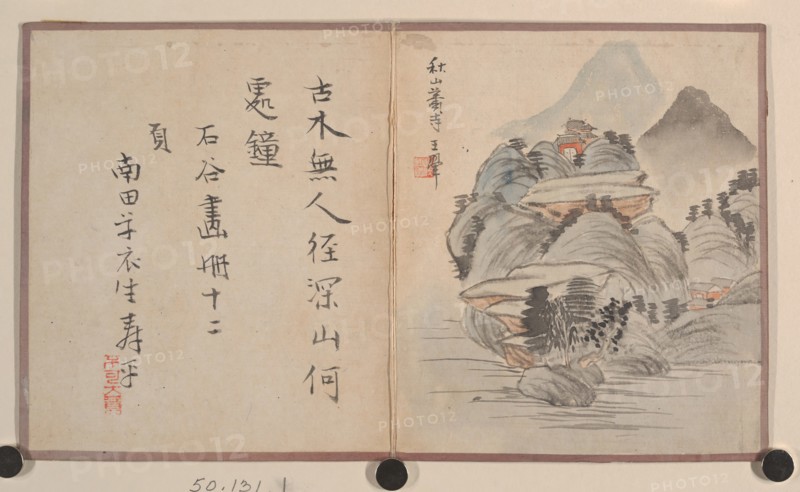 秋山蕭寺 王翬
古木無人径深山何
處鐘
石谷畫冊十二
頁
南田草衣生壽平
50.131.1
PHOTO12